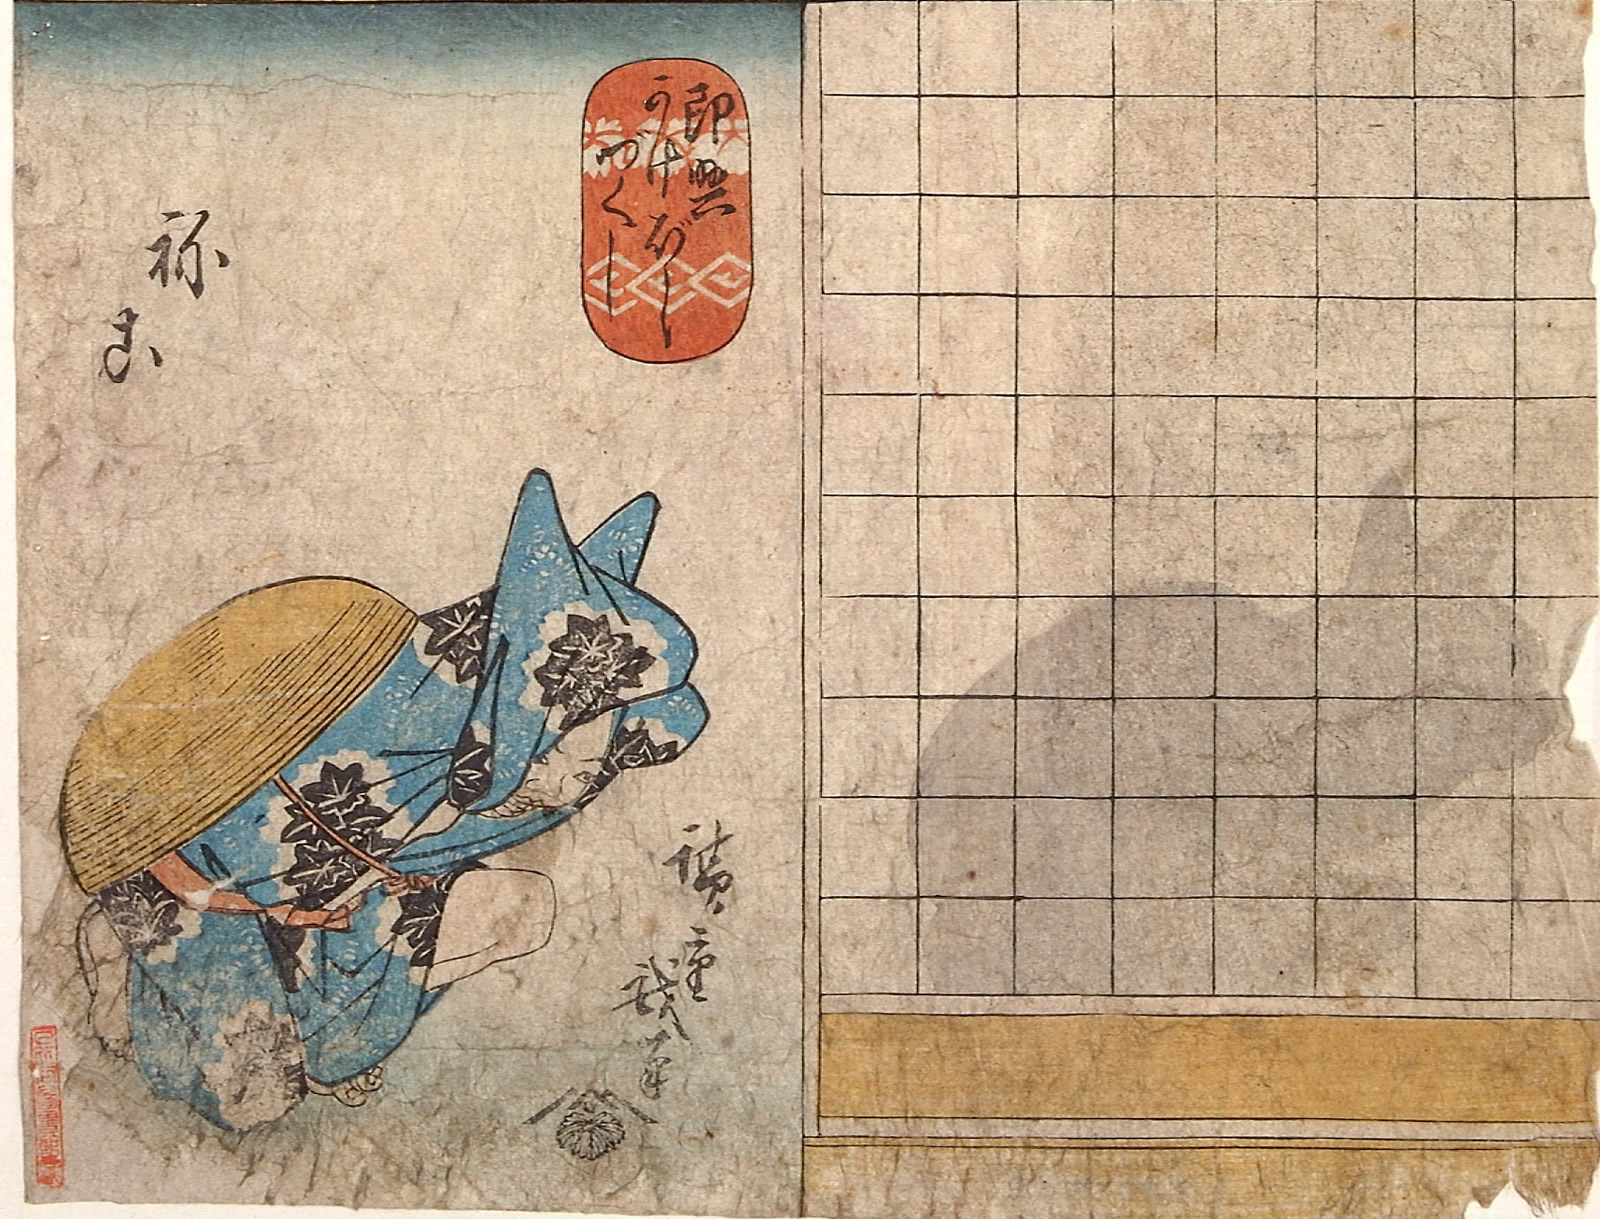 即興
かげぼし
づくし
祢こ
廣重戯筆